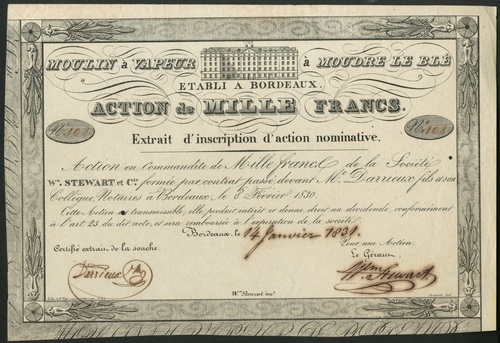 MOULIN à VAPEUR à MOUDRE LE BLÉ
ETABLI A BORDEAUX.
ACTION de MILLE FRANCS.
No. 108 No. 108
Extrait d'inscription d'action nominative.
Action en Commandite de Mille francs de la Société
Wm. STEWART et Cie. formée par contrat passé devant Me. Darrieux fils et son
Collègue, Notaires à Bordeaux, le 8 Février 1830.
Cette Action transmissible, elle produit intérêt et donne droit au dividende, conformément
à l'art 23 du dit acte, et sera remboursée à l'expiration de la société
Bordeaux, le 14 Janvier 1831.
Certifié extrait de la souche. Pour une Action.
Le Gérant
Darrieux Wm. Stewart
Wm. Stewart inv.